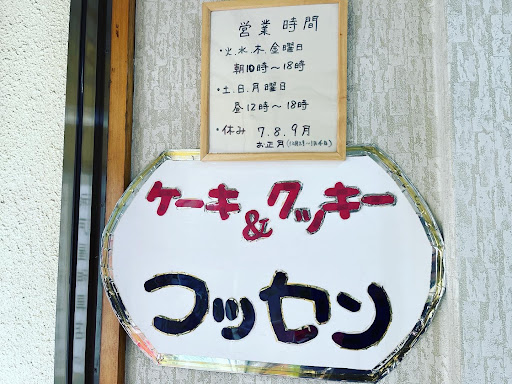 営業時間
・火.水.木.金曜日
朝10時～18時
・土.日.月曜日
昼12時～18時
・休み 7.8.9月
お正月
ケーキ&クッキー
コッセン